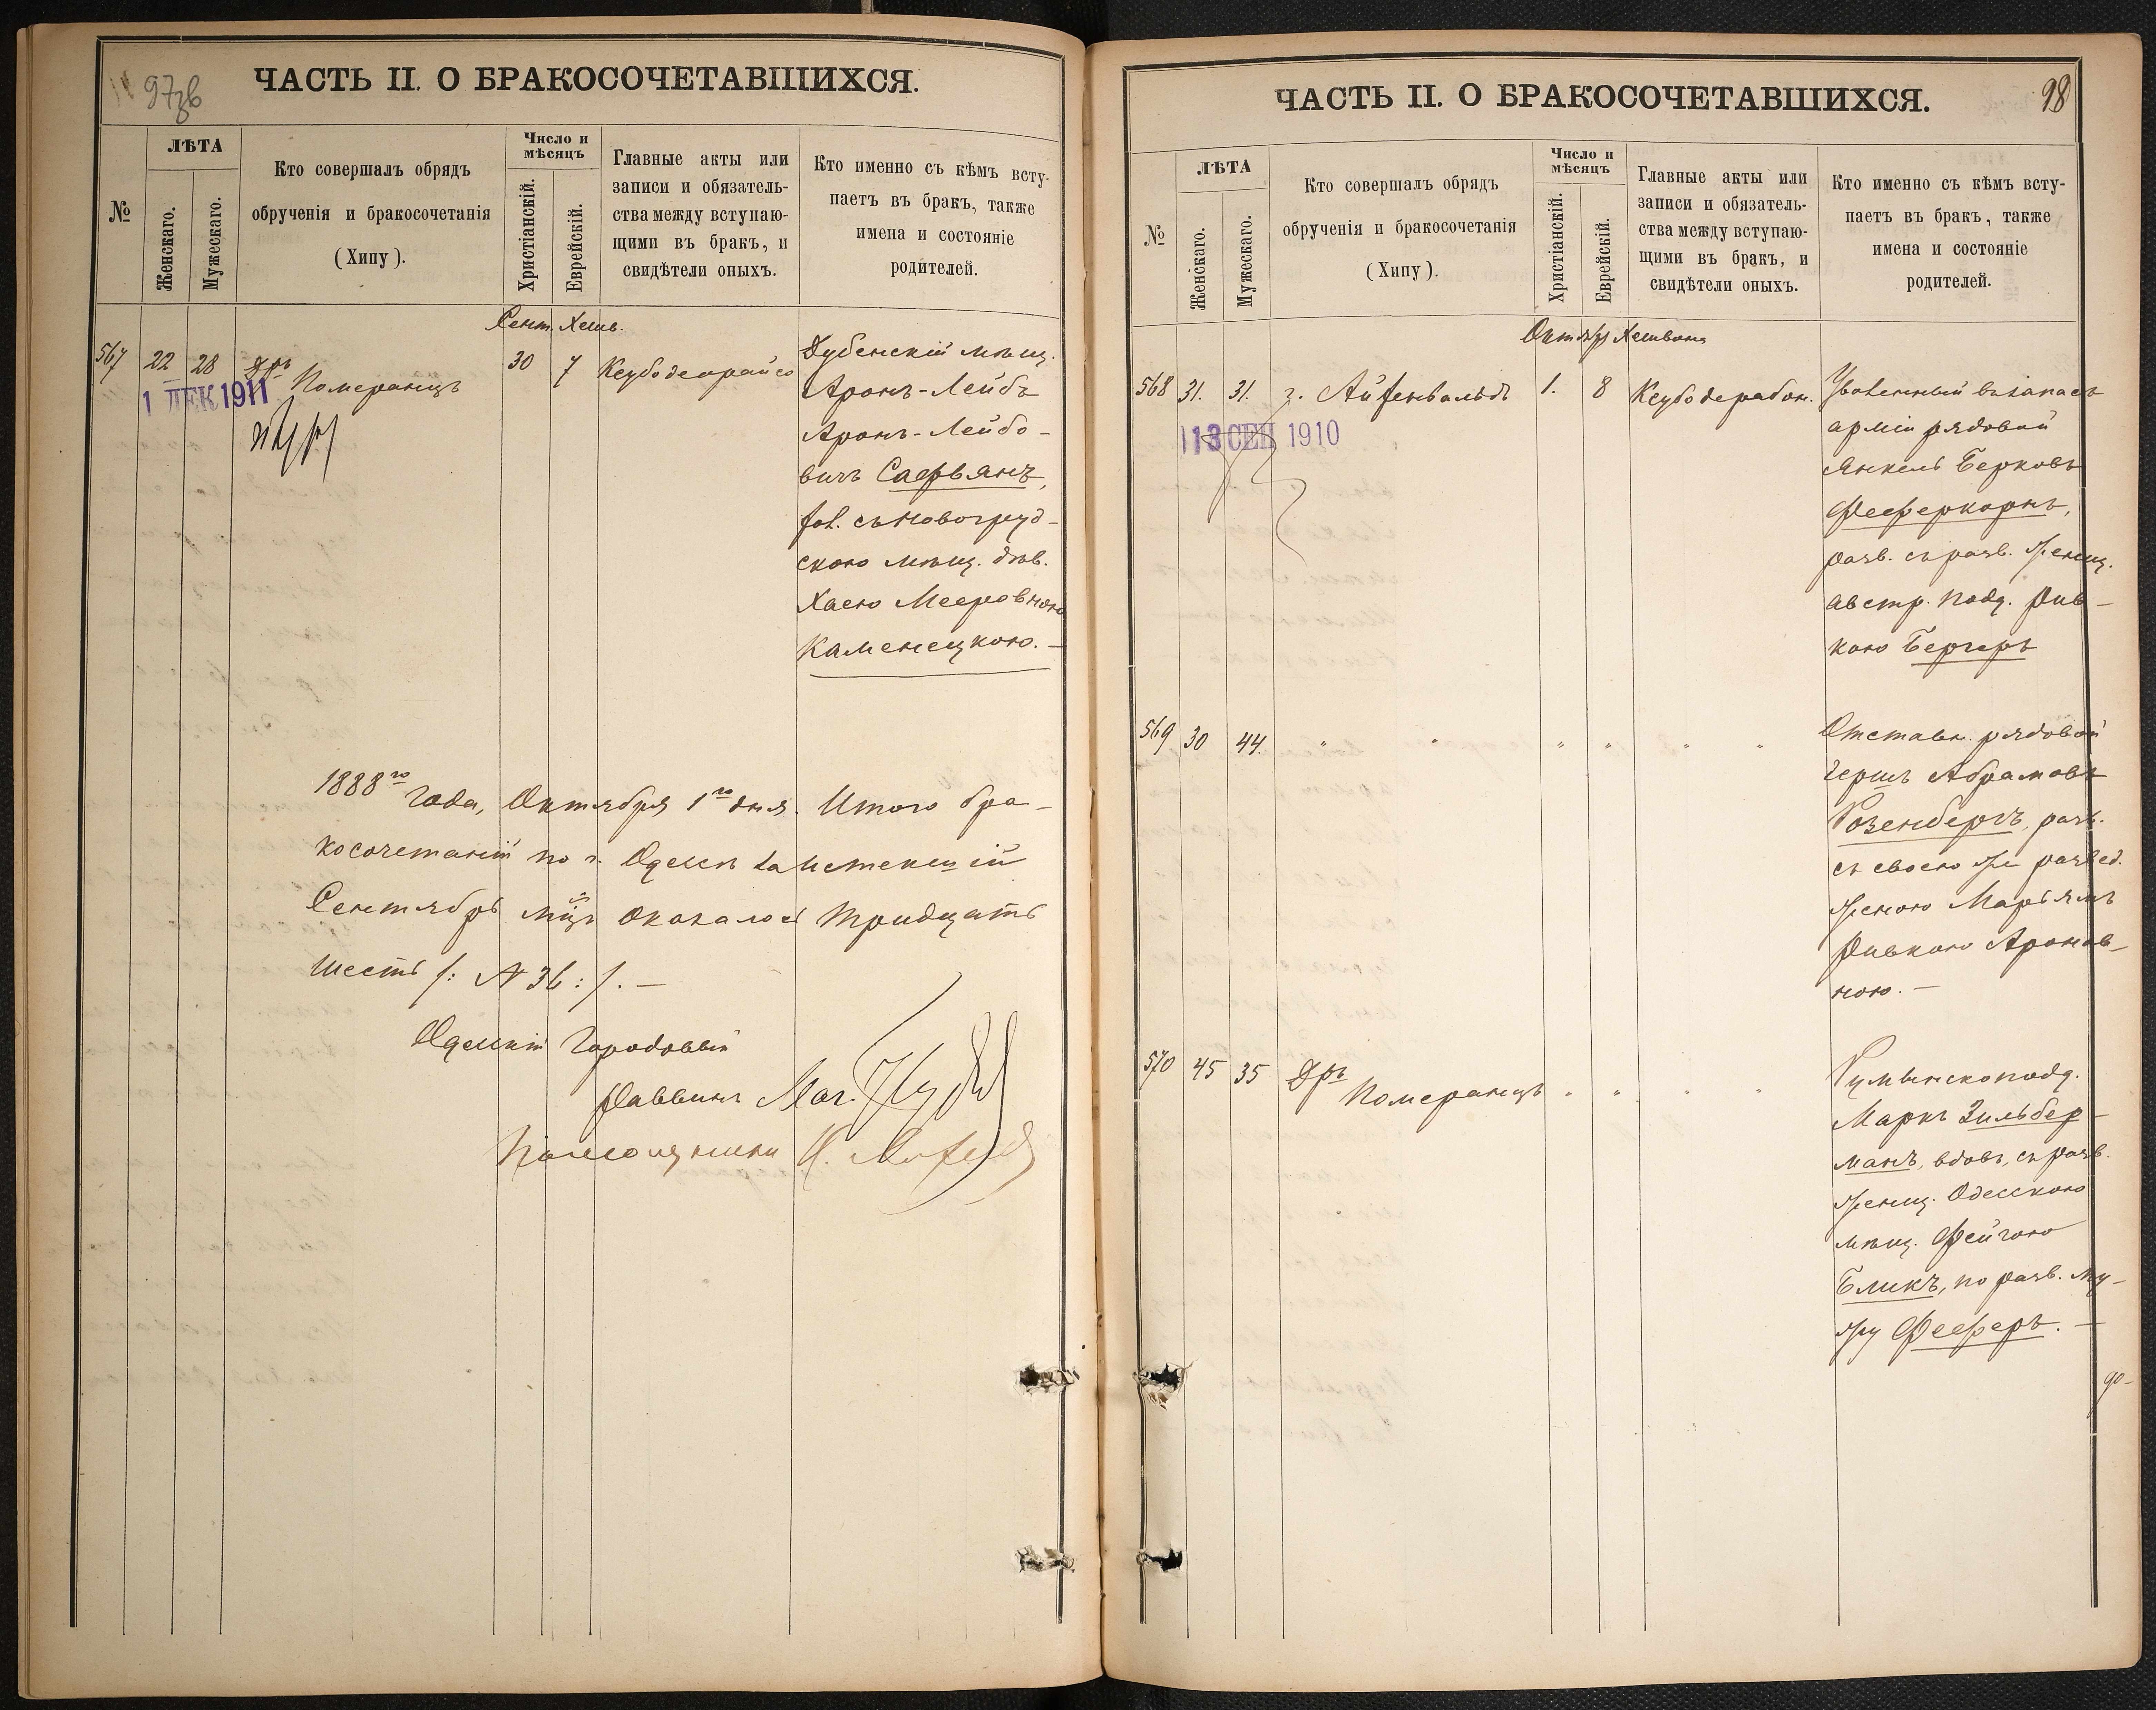 97об
ЧАСТЬ II. О БРАКОСОЧЕТАВШИХСЯ.
№
ЛѢТА
Женскаго.
Мужескаго.
Кто совершалъ обрядъ
обрученія и бракосочетанія
(Хипу).
Число и
мѣсяцъ
Христіанскій.
Еврейскій.
Главные акты или
записи и обязатель-
ства между вступаю-
щими въ бракъ, и
свидѣтели оныхъ.
Кто именно съ кѣмъ всту-
паетъ въ бракъ, также
имена и состояніе
родителей.
Сент. Хешв.
567 22 28 Дръ Померанцъ 30 7
1 ДЕК 1911
Дубенскій мѣщ.
Аронъ-Лейбъ
Аронъ-Лейбо-
вичъ Сафьянъ,
хол. съ Новогруд-
скою мѣщ. дѣв.
Хаею Мееровною
Каменецкою. —
1888го года, Октября 1го дня. Итого бра-
косочетаній по г. Одессѣ за истекшій
Сентябрь мцъ оказалось тридцать
шесть /: № 36 :/. —
Одесскій Городовой
Раввинъ
Помощникъ
98
ЧАСТЬ II. О БРАКОСОЧЕТАВШИХСЯ.
№
ЛѢТА
Женскаго.
Мужескаго.
Кто совершалъ обрядъ
обрученія и бракосочетанія
(Хипу).
Число и
мѣсяцъ
Христіанскій.
Еврейскій.
Главные акты или
записи и обязатель-
ства между вступаю-
щими въ бракъ, и
свидѣтели оныхъ.
Кто именно съ кѣмъ всту-
паетъ въ бракъ, также
имена и состояніе
родителей.
Октябр Хешвана
568 31. 31. г. Айзенвальдъ 1. 8 Ксубо дерабон.
13 СЕН 1910
Уволенный въ запасъ
арміи рядовой
Янкель Берковъ
Фефферкорнъ,
разв. съ разв. женщ.
австр. подд. Рив-
кою Бергеръ
569 30 44. " " " " " "
Отставн. рядовой
Гершъ Абрамовъ
Розенбергъ, разв.
съ своею же развед.
женою Марьямъ
Ривкою Аронов-
ною. —
570 45 35 Дръ Померанцъ " " " "
Румынскоподд.
Маркъ Зильбер-
манъ, вдовъ, съ разв.
женщ. Одесскою
мѣщ. Фейгою
Бликъ, по разв. му-
жу Фефферъ. —